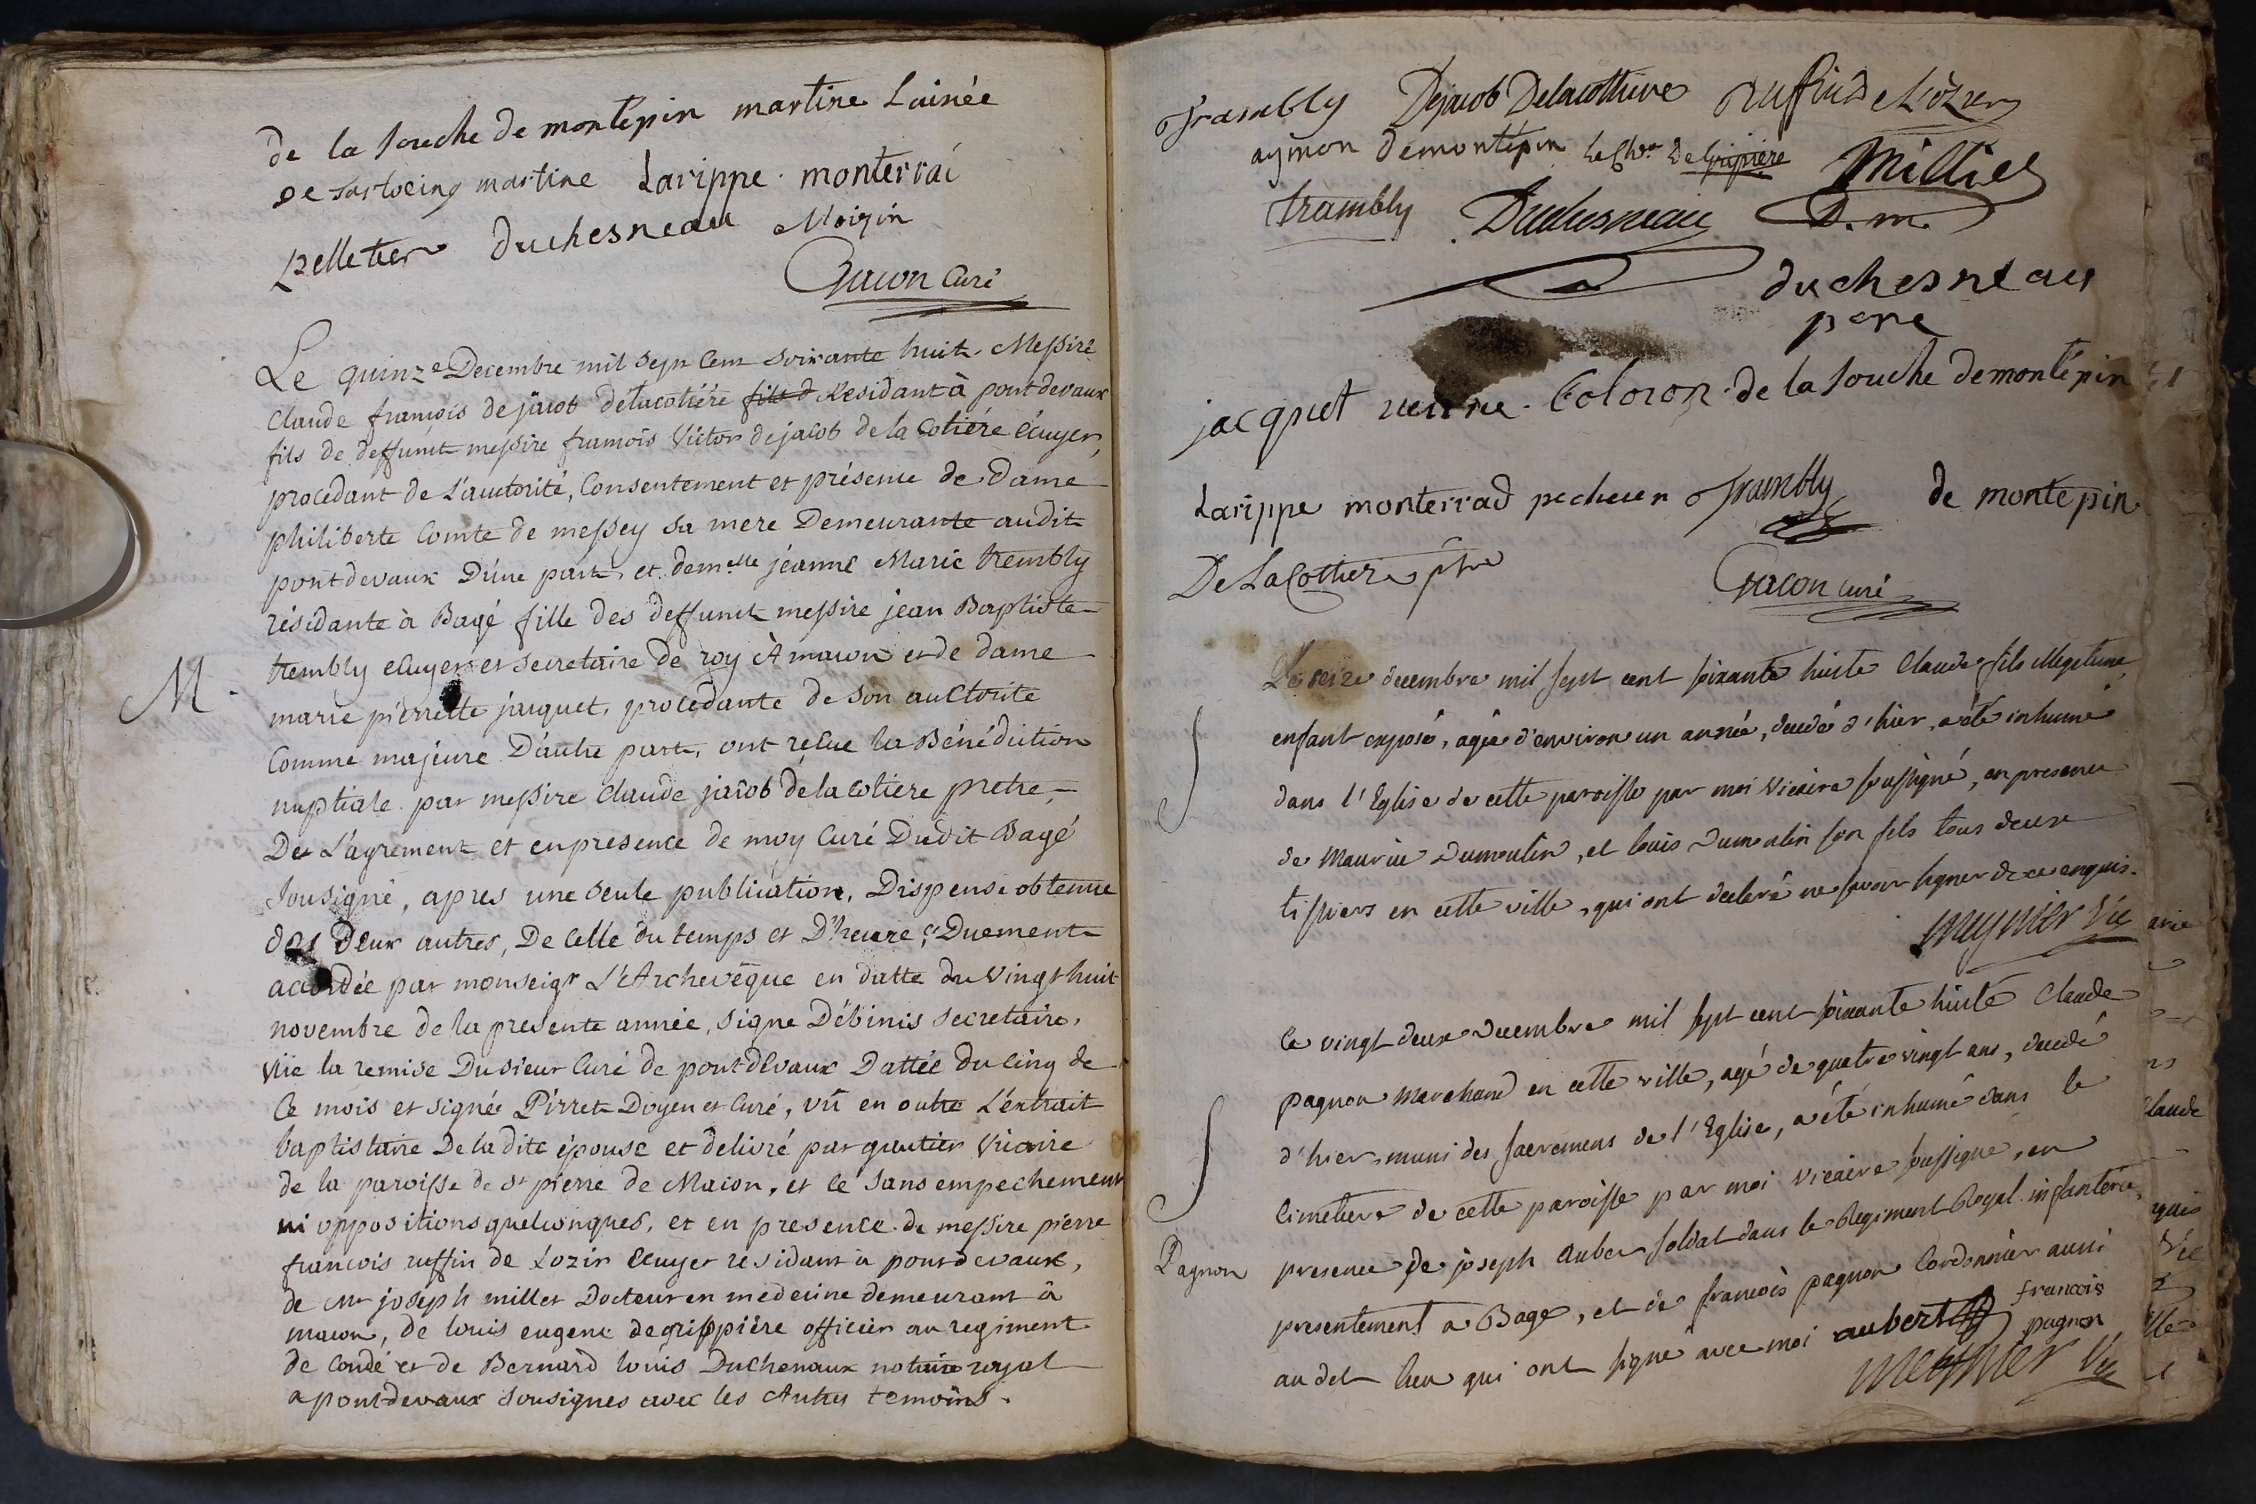 de la souche de montépin martine Lainée
martine Larippe monterrai
pelletier duchesneau Moizin
Gacon Curé
Le quinze Decembre mil sept Cent soixante huit, Messire
Claude françois de jacob delacotiére fils d Residant à pontdevaux
fils de deffunt messire francois Victor dejacob de la Cotiére écuyer,
procedant de L'auctorité, Consentement et présence de Dame
philiberte Comte de messey sa mere Demeurante audit
pontdevaux D'une part, et demelle jéanne Marie trembly
résidante à Bagé fille des deffunt messire jean Baptiste
M. trembly ecuyer et secretaire de roy à macon et de dame
marie pierrette jacquet, procedante de son auctorité
Comme majeure D'autre part, ont reçue la Bénédiction
nuptiale par messire claude jacob delacotiere pretre,
De L'agrement et en presence de moy Curé Dudit Bagé
sousigné, apres une seule publication, Dispense obtenue
des Deux autres, De Celle du temps et D'heure, Duement
accordée par monseigr L'Archevêque en datte du Vingt huit
novembre de la presente année, signe Débinis secretaire,
Vüe la remise Du sieur Curé de pontdevaux Dattée du Cinq de
Ce mois et signée Pirret Doyen et Curé, vû en outre L'extrait
baptistaire De la dite épouse et delivré par gautier Vicaire
de la paroisse de st pierre de Macon, et ce sans empechement
ni oppositions quelconques, et en presence de messire pierre
francois ruffin de Lozir Ecuyer residant à pontdevaux,
de mr joseph millet Docteur en medecine demeurant à
macon, de louis eugene degrippiére officier au regiment
de Condé et de Bernard louis Duchenaux notaire royal
a pontdevaux sousignes avec les Autres temoins.
Trambly Dejacob Delacottiere Ruffin de Lozier
aymon demontépin le chvr de Grippiere Millies
trambly Duchesneau D.m.
duchesneau
pere
jacquet de la souche demontépin
Larippe monterrad pecheur Trambly de montepin
De La Cottiere ptre
Gacon curé
Le seize decembre mil sept cent soixante huite Claude fils illegetime
enfant exposé, agée d'environ un année, decedé d'hier, a été inhumé
dans l'Eglise de cette paroisse par moi Vicaire soussigné, en presence
de Maurice Dumoulin, et louis Dumoulin son fils tous deux
tissiers en cette ville, qui ont declaré ne savoir signer de ce enquis.
meynier Vic
Le vingt deux decembre mil sept cent soixante huite Claude
pagnon Marchand en cette ville, agé de quatre vingt ans, decedé
d'hier, muni des sacremens de l'Eglise, a été inhumé dans le
Cimetiere de cette paroisse par moi Vicaire soussigné, en
Pagnon presence de joseph Auber soldat dans le Regiment Royal infanterie,
presentement a Bagé, et de francois pagnon Cordonnier aussi
au dct lieu qui ont signé avec moi aubert francois
pagnon
meynier Vic